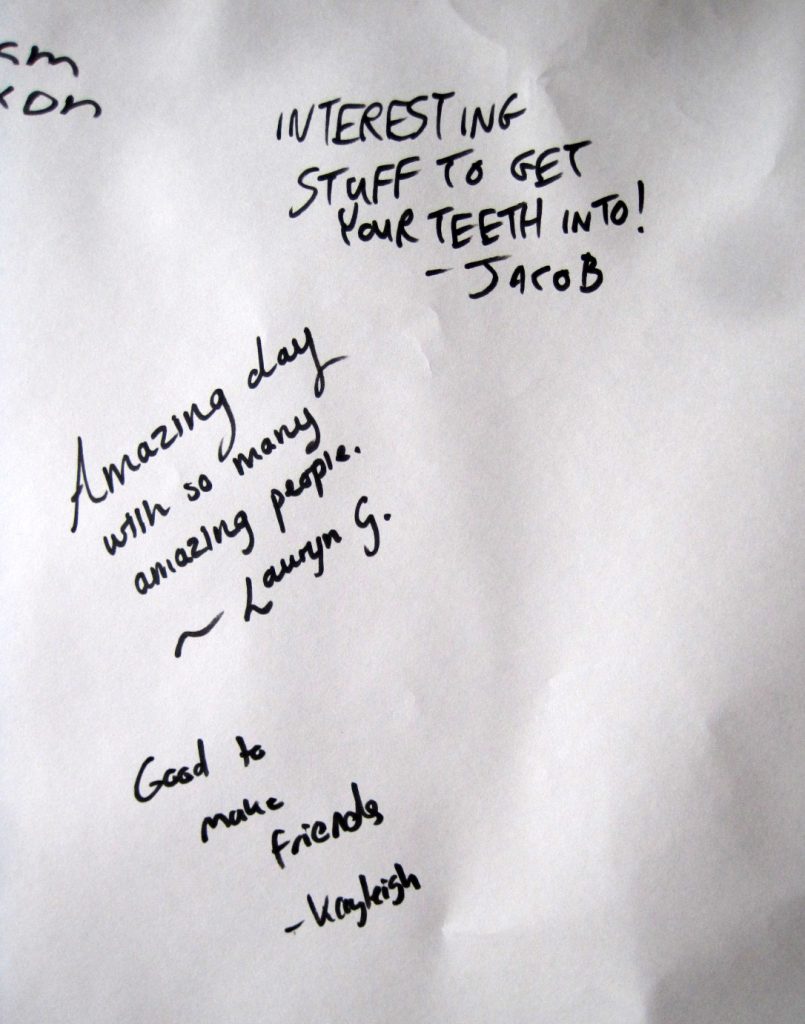 INTERESTING
STUFF TO GET
YOUR TEETH INTO!
- JACOB
Amazing day
with so many
amazing people.
~ Lauryn G.
Good to
make
friends
- Kayleigh